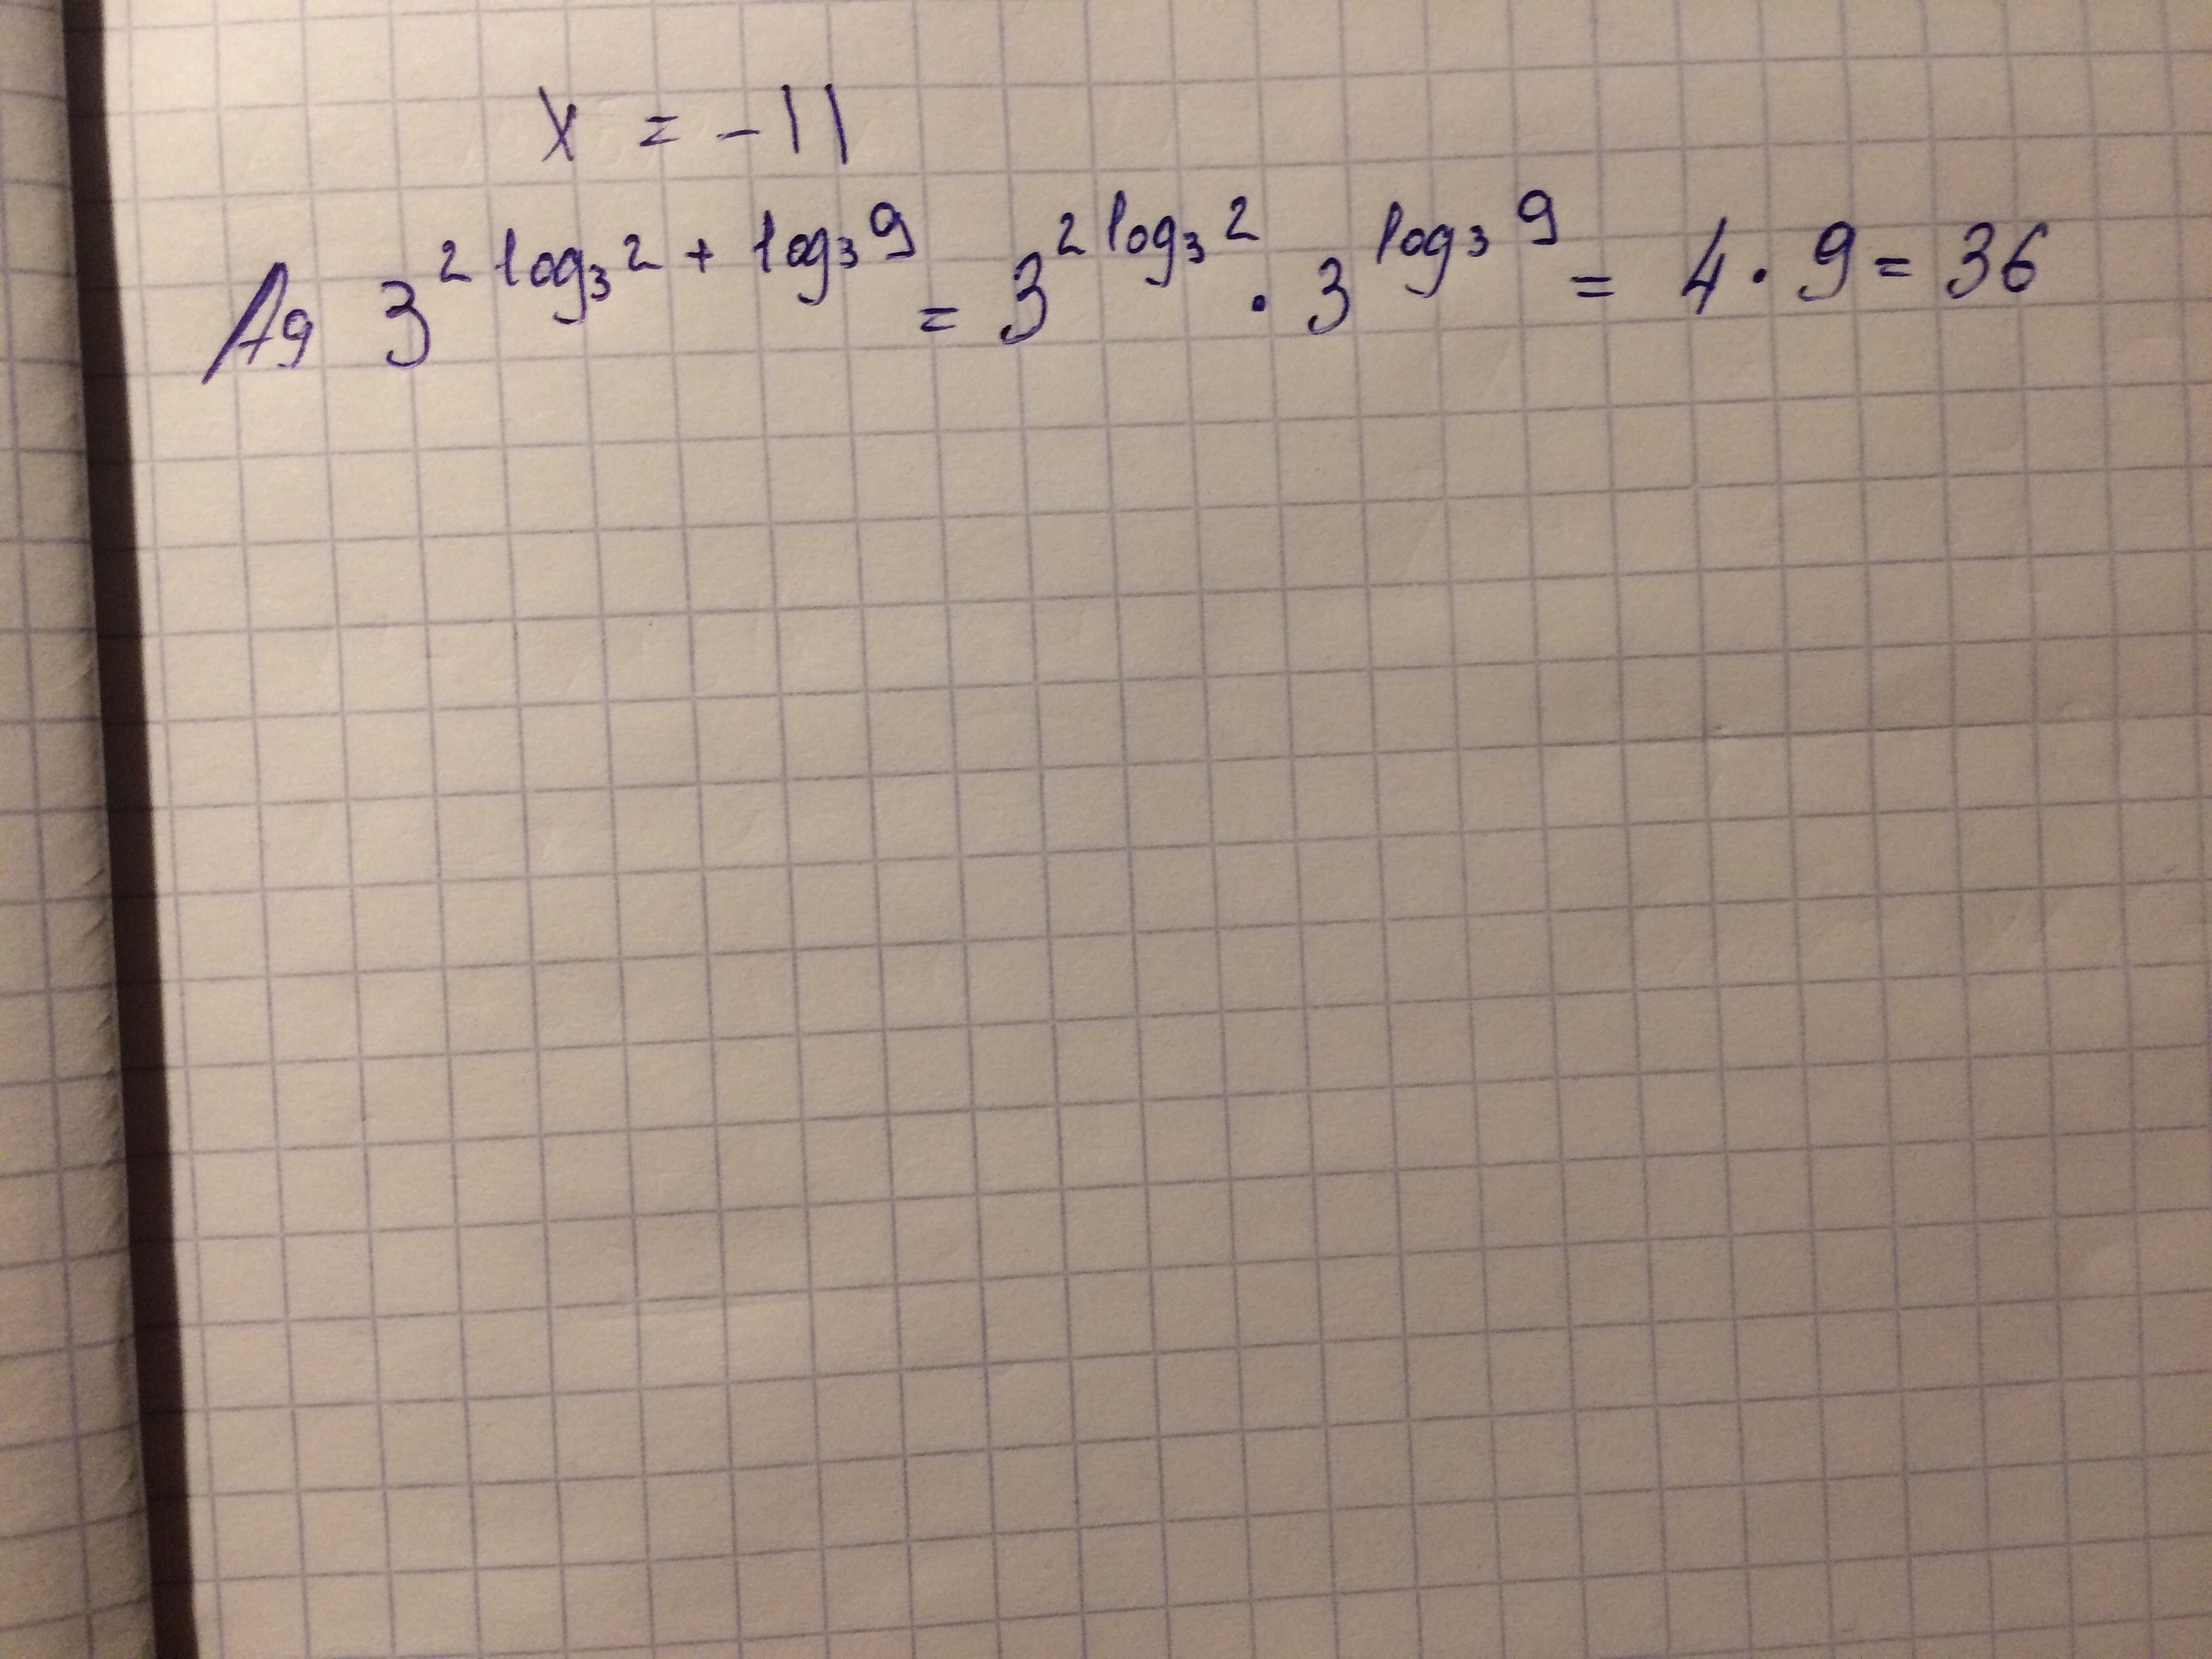 x = -11
A9 3^{2 log_3 2 + log_3 9} = 3^{2 log_3 2} · 3^{log_3 9} = 4 · 9 = 36